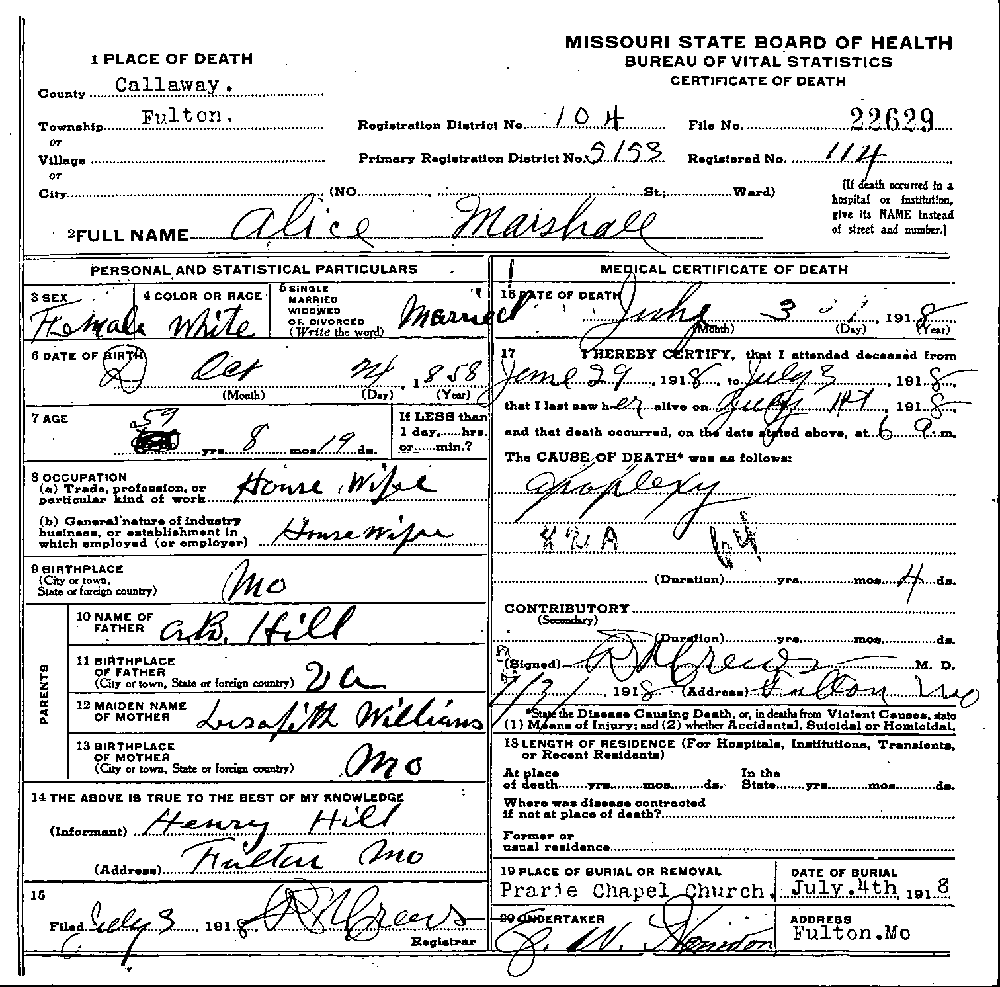 MISSOURI STATE BOARD OF HEALTH
BUREAU OF VITAL STATISTICS
CERTIFICATE OF DEATH
1 PLACE OF DEATH
County Callaway.
Township Fulton.
or
Village
or
City (NO. St; Ward)
Registration District No. 104 File No. 22629
Primary Registration District No. 5153 Registered No. 114
[If death occurred in a
hospital or institution,
give its NAME instead
of street and number.]
2 FULL NAME Alice Marshall
PERSONAL AND STATISTICAL PARTICULARS
3 SEX Female
4 COLOR OR RACE White
5 SINGLE
MARRIED
WIDOWED
OR DIVORCED
(Write the word) Married
6 DATE OF BIRTH Oct 14, 1858
(Month) (Day) (Year)
7 AGE 59 yrs. 8 mos. 19 ds.
If LESS than
1 day, hrs.
or min.?
8 OCCUPATION
(a) Trade, profession, or
particular kind of work House Wife
(b) General nature of industry
business, or establishment in
which employed (or employer) House wife
9 BIRTHPLACE
(City or town,
State or foreign country) Mo
PARENTS
10 NAME OF
FATHER Hill
11 BIRTHPLACE
OF FATHER
(City or town, State or foreign country) Va
12 MAIDEN NAME
OF MOTHER Williams
13 BIRTHPLACE
OF MOTHER
(City or town, State or foreign country) Mo
14 THE ABOVE IS TRUE TO THE BEST OF MY KNOWLEDGE
(Informant) Henry Hill
(Address) Fulton Mo
15
Filed July 3, 1918 Crews
Registrar
MEDICAL CERTIFICATE OF DEATH
16 DATE OF DEATH July 3, 1918
(Month) (Day) (Year)
17 I HEREBY CERTIFY, that I attended deceased from
June 29, 1918, to July 3, 1918,
that I last saw her alive on July 1918,
and that death occurred, on the date stated above, at 6 a.m.
The CAUSE OF DEATH* was as follows:
Apoplexy
82A
(Duration) yrs. mos. 4 ds.
CONTRIBUTORY
(Secondary)
(Duration) yrs. mos. ds.
(Signed) Crews M. D.
7/3/, 1918 (Address) Fulton Mo
*State the Disease Causing Death, or, in deaths from Violent Causes, state
(1) Means of Injury; and (2) whether Accidental, Suicidal or Homicidal.
18 LENGTH OF RESIDENCE (For Hospitals, Institutions, Transients,
or Recent Residents)
At place
of death yrs. mos. ds.
In the
State yrs. mos. ds.
Where was disease contracted
if not at place of death?
Former or
usual residence
19 PLACE OF BURIAL OR REMOVAL
Prarie Chapel Church.
DATE OF BURIAL
July.4th, 1918
20 UNDERTAKER
ADDRESS
Fulton.Mo